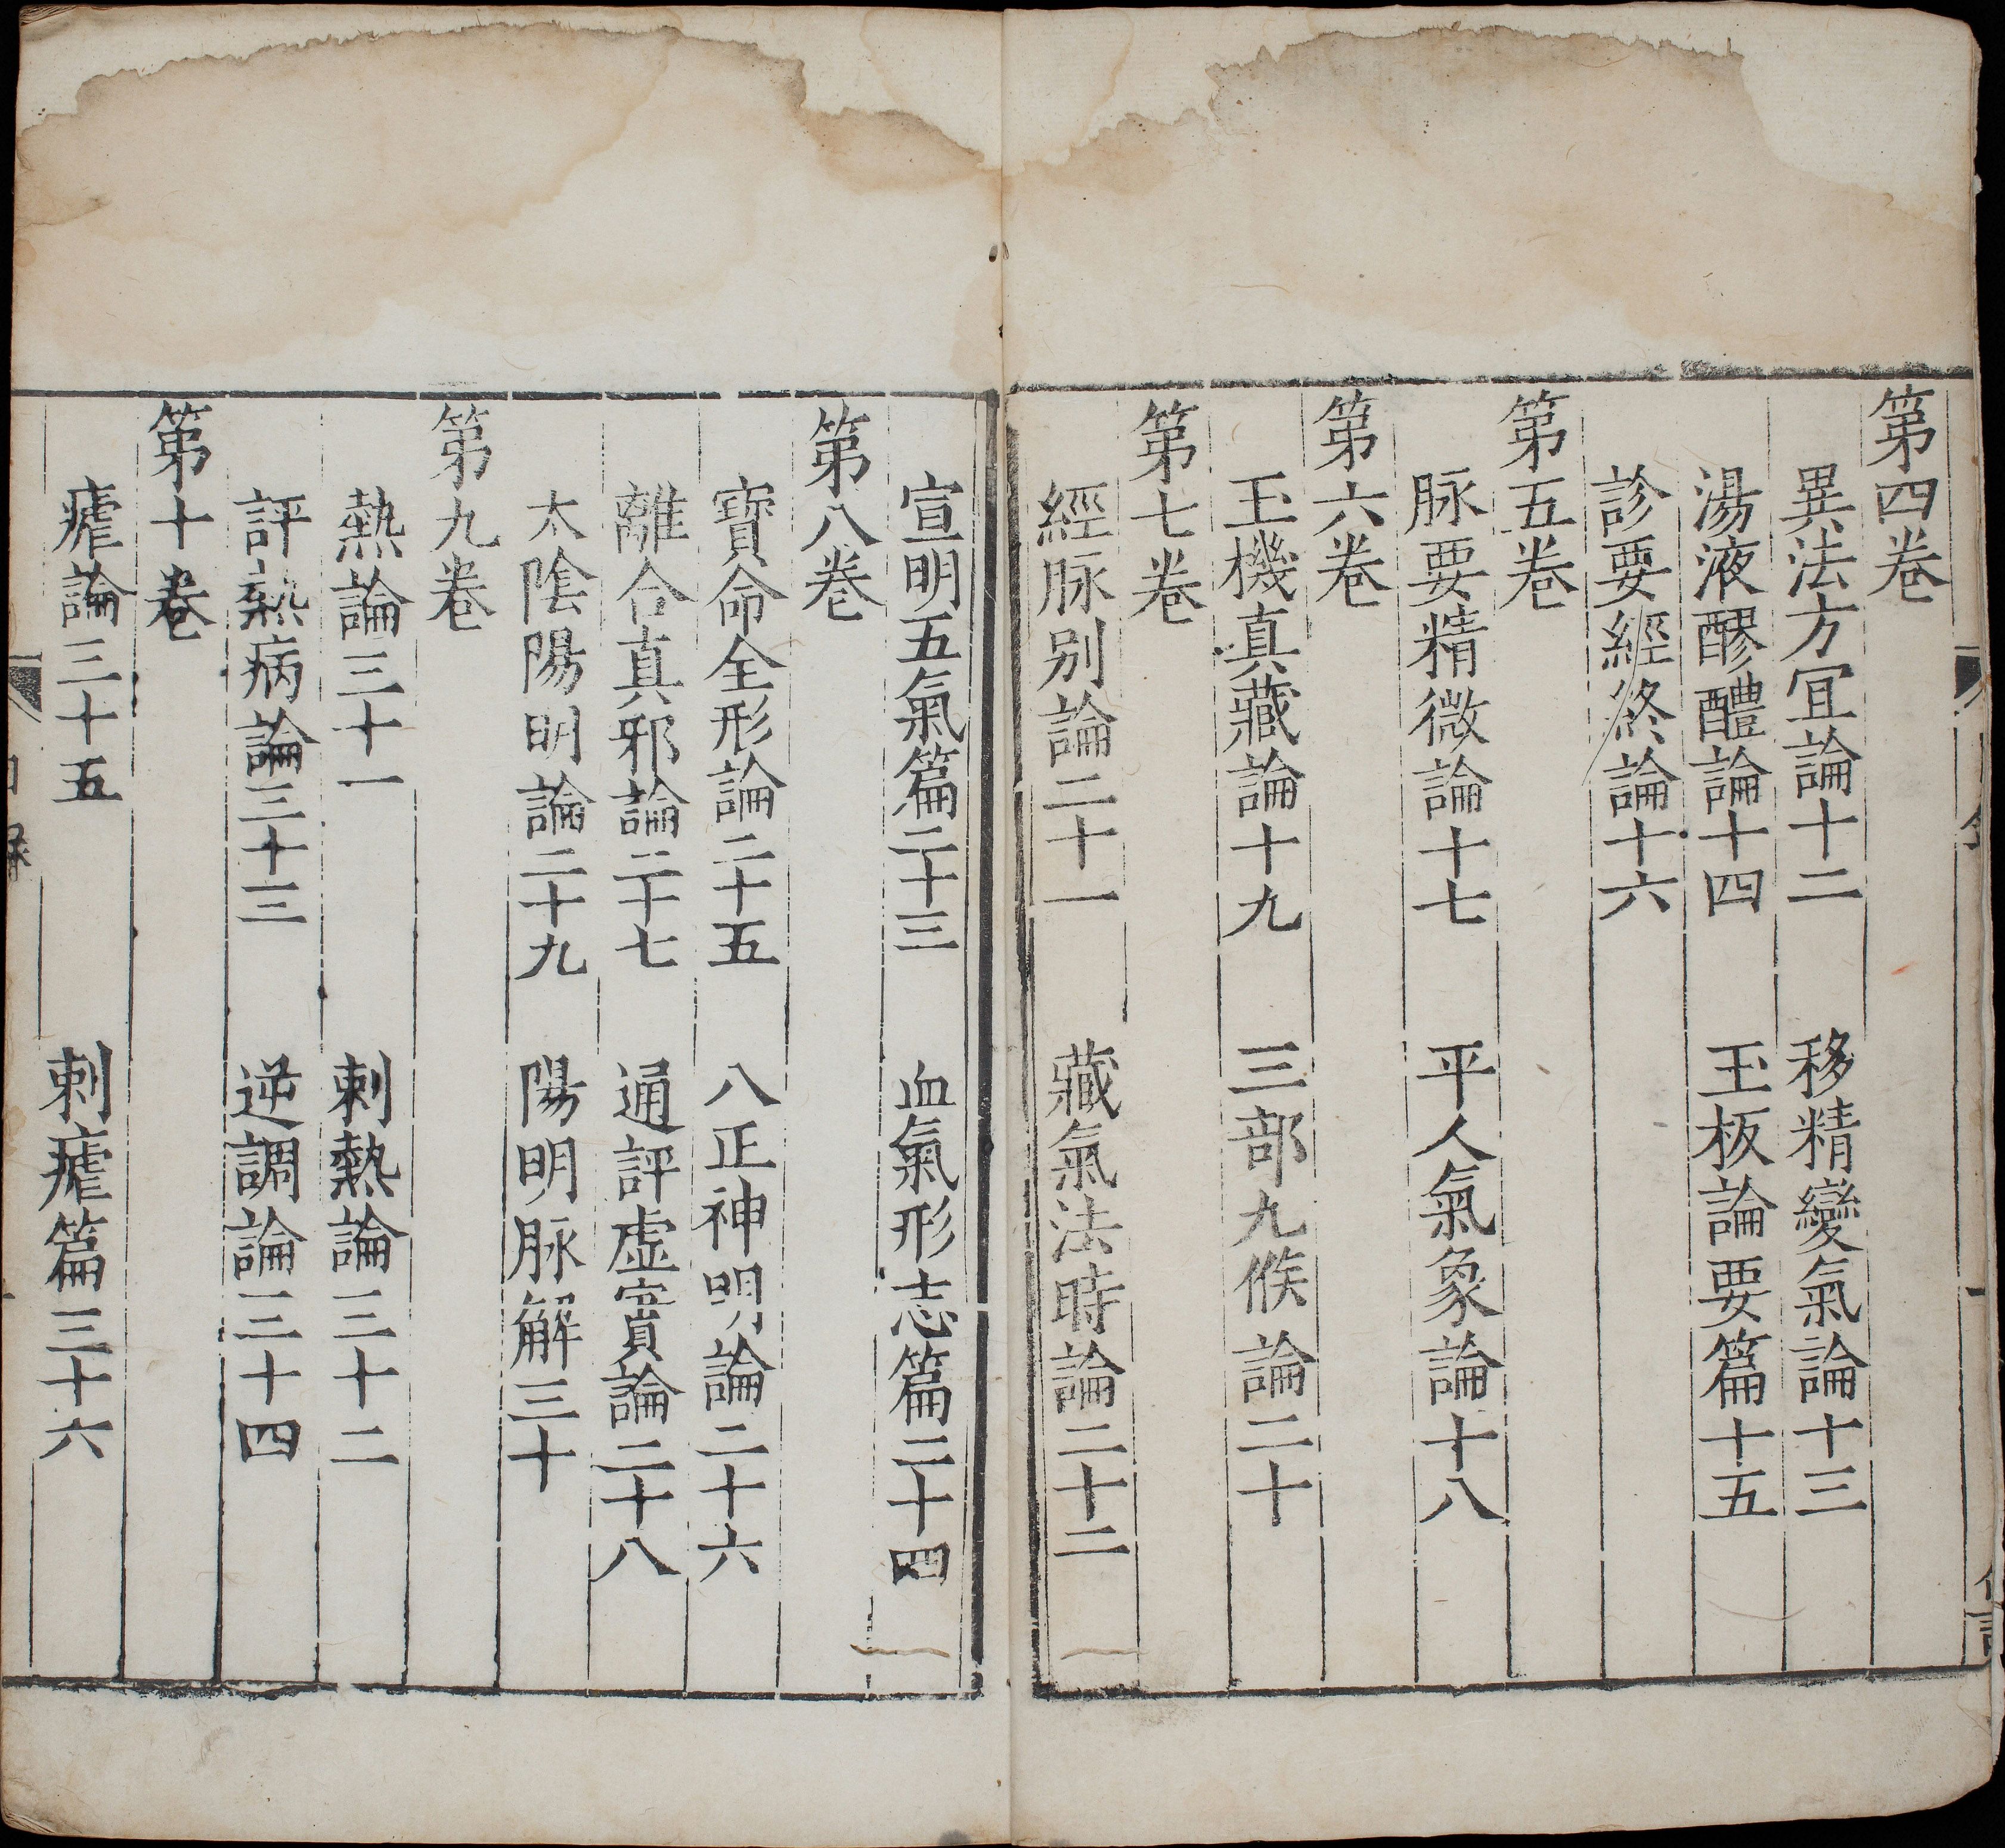 第四卷
異法方宜論十二　移精變氣論十三
湯液醪醴論十四　玉板論要篇十五
診要經終論十六
第五卷
脉要精微論十七　平人氣象論十八
第六卷
玉機真藏論十九　三部九候論二十
第七卷
經脉别論二十一　藏氣法時論二十二
宣明五氣篇二十三　血氣形志篇二十四
第八卷
寶命全形論二十五　八正神明論二十六
離合真邪論二十七　通評虛實論二十八
太陰陽明論二十九　陽明脉解三十
第九卷
熱論三十一　刺熱論三十二
評熱病論三十三　逆調論三十四
第十卷
瘧論三十五　刺瘧篇三十六